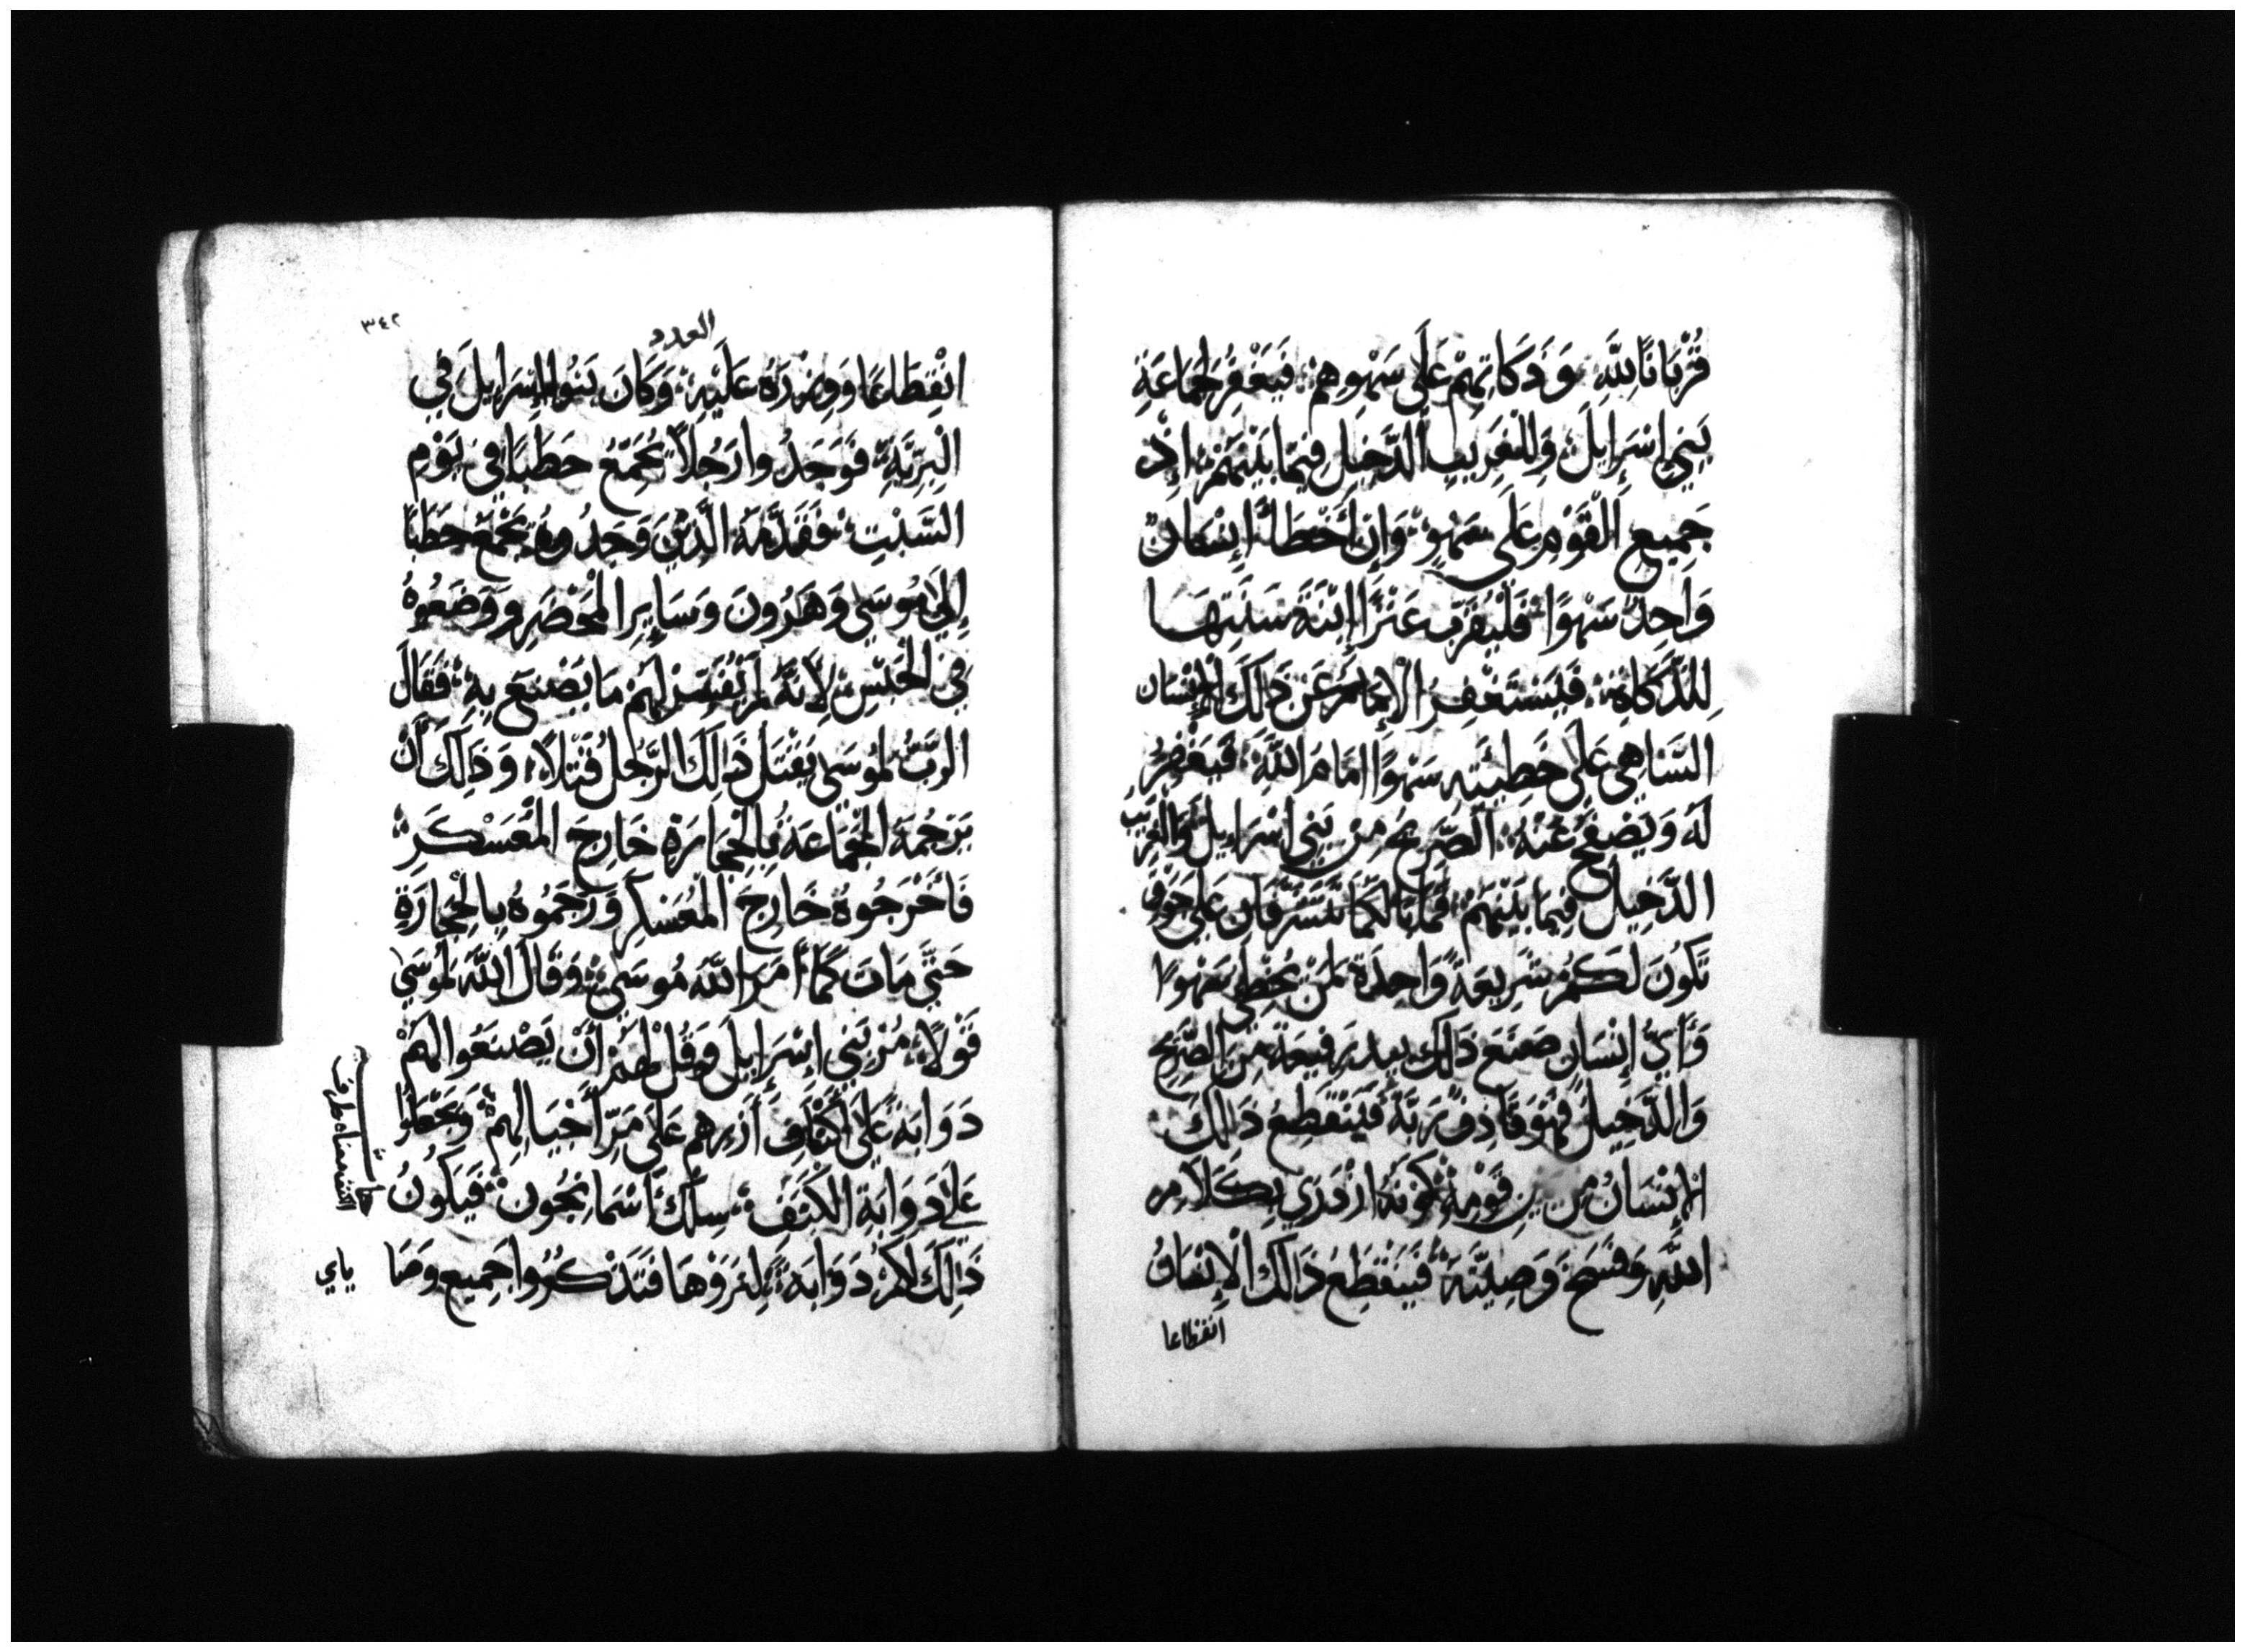 قُرْبَانًا لِلَّهِ وَذَكَاتِهِمْ عَلَى سَهْوِهِمْ فَيَغْفِرُ لِجَمَاعَةِ
بَنِي إِسْرَايِلَ وَلِلْغَرِيبِ الدَّخِيلِ فِيمَا بَيْنَهُمْ إِذْ
جَمِيعِ الْقَوْمِ عَلَى سَهْوٍ وَإِنْ أَخْطَأَ إِنْسَانٌ
وَاحِدٌ سَهْوًا فَلْيُقَرِّب عَنْزًا إِبْنَةَ سَنَتِهَا
لِلذَّكَاةِ فَيَسْتَغْفِرُ الْإِمَامُ عَنْ ذَالِكَ الْإِنْسَان
السَّاهِي عَلَى خَطِيئَتِهِ سَهْوًا أَمَامَ اللَّهِ فَيَغْفِرُ
لَهُ وَيَصْفَحُ عَنْهُ الصَّرِيحُ مِنْ بَنِي إِسْرَايِلَ وَالْغَرِيب
الدَّخِيلُ فِيمَا بَيْنَهُمْ عَلَى
تَكُونَ لَكُمْ شَرِيعَةً وَاحِدَةً لِمَنْ يُخْطِي سَهْوًا
وَأَيُّ إِنْسَانٍ صَنَعَ ذَالِكَ بِيدٍ رَفِيعَةٍ مِنَ الصَّرِيحِ
وَالدَّخِيلِ فَهُوَ قَاذِفٌ رَبَّهُ فَيَنْقَطِعُ ذَالِكَ
الْإِنْسَانُ مِنْ بَيْنِ قَوْمِهِ لِكَوْنِهِ ازْدَرَى بِكَلَامِ
اللَّهِ وَفَسَخَ وَصِيَّتَهُ فَيَنْقَطِعُ ذَالِكَ الْإِنْسَانُ
انقطاعا
العدد
٣٤٢
انْقِطَاعًا وَوِزْرَهُ عَلَيْهِ وَكَانَ بَنُوا إِسْرَايِلَ فِي
الْبَرِّيَّةِ فَوَجَدُوا رَجُلًا يُجَمِّعُ حَطَبًا فِي يَوْمِ
السَّبْتِ فَقَدَّمَهُ الَّذِينَ وَجَدُوهُ يَجْمَعُ حَطَبًا
إِلَى مُوسَى وَهَرُونَ وَسَايِرِ الْمَحْضَرِ وَوَضَعُوهُ
فِي الْحَبْسِ لِأَنَّهُ لَمْ يُفَسَّرْ لَهُمْ مَا يَصْنَعَ بِهِ فَقَالَ
الرَّبُّ لِمُوسَى يُقْتَلُ ذَالِكَ الرَّجُلُ قَتْلًا وَذَلِكَ أَنْ
يَرْجُمَهُ الْجَمَاعَةُ بِالْحِجَارَةِ خَارِجَ الْمُعَسْكَرِ
فَأَخْرَجُوهُ خَارِجَ الْمُعَسْكَرِ وَرَجَمُوهُ بِالْحِجَارَةِ
حَتَّى مَاتَ كَمَا أَمَرَ اللَّهُ مُوسَى وَقَالَ اللَّهُ لِمُوسَى
قَوْلًا مُرْ بَنِي إِسْرَايِلَ وَقُلْ لَهُمْ أَنْ يَصْنَعُوا لَهُمْ
دَوَابَةً عَلَى أَكْنَافِ أُزُرِهِمْ عَلَى مَرِّ أَجْيَالِهِمْ وَيَجْعَلُوا
عَلَى دَوَابَةِ الْكَنَفِ سِلْكَ اسْمَانْجُونْ فَيَكُونُ
ذَالِكَ لَكُمْ دَوَابَةً لِتَرَوْهَا فَتَذْكُرُوا جَمِيعَ وَصَا
ياي
الكنف معناه طرف